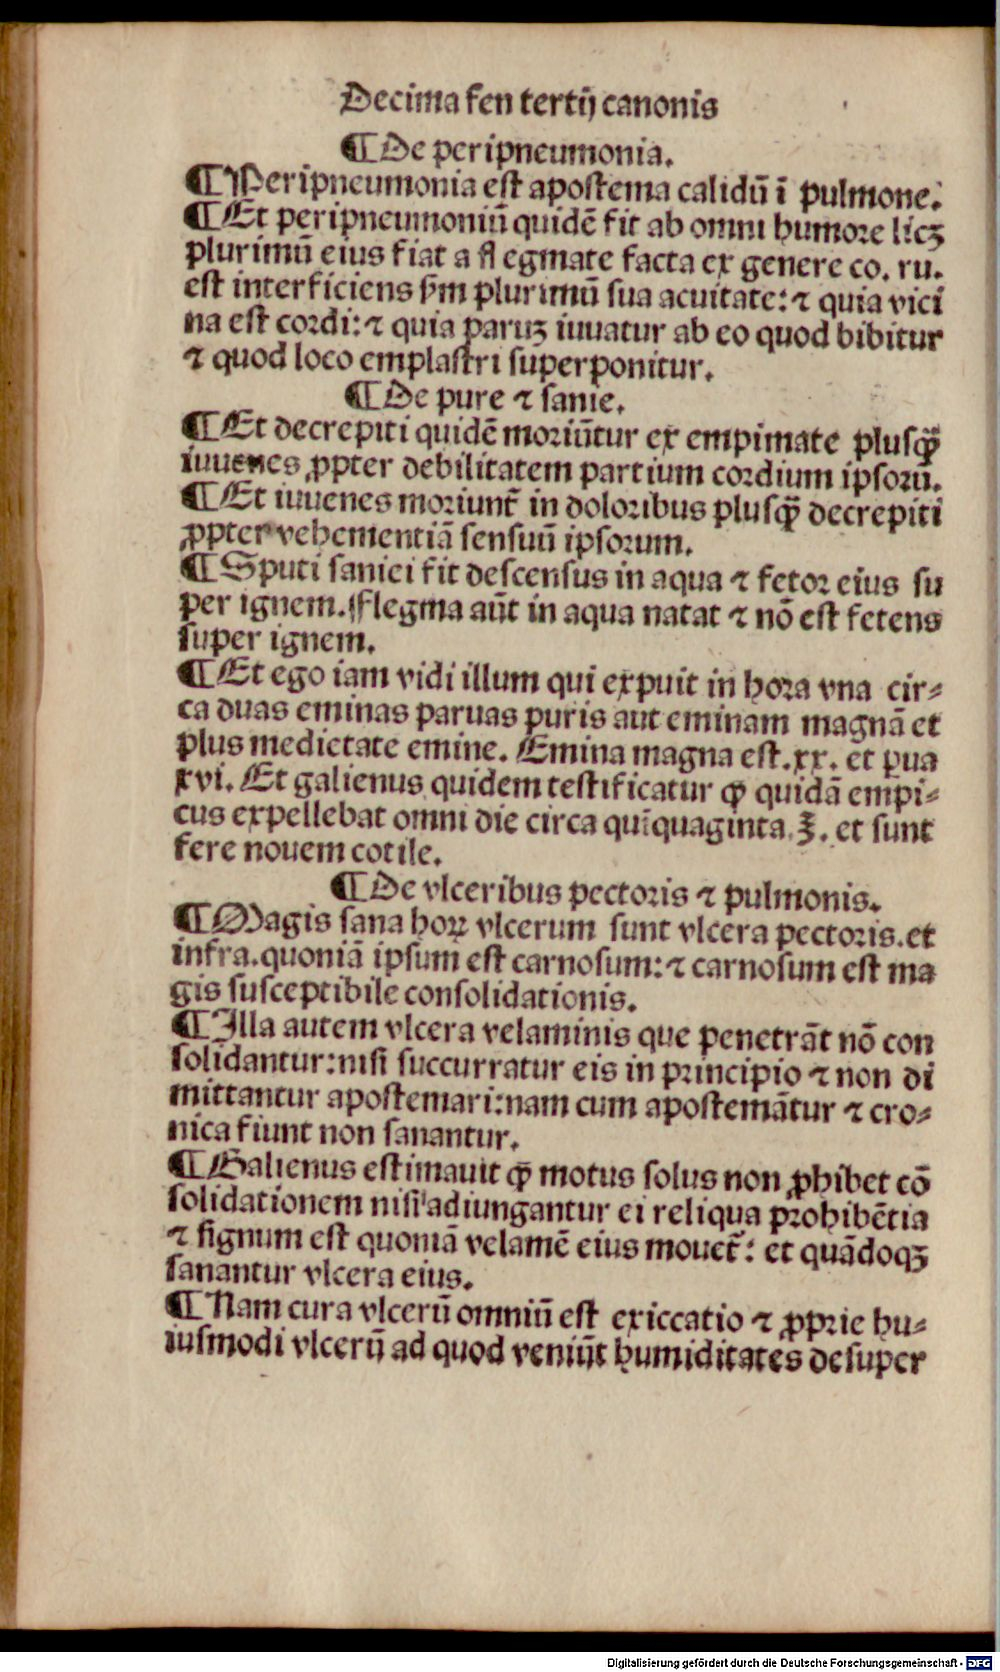 Decima fen tertij canonis
¶De peripneumonia.
¶Peripneumonia est apostema calidū ī pulmone.
¶Et peripneumoniū quidē fit ab omni humore licꝫ
plurimū eius fiat a flegmate facta ex genere co. ru.
est interficiens ẜm plurimū sua acuitate: ⁊ quia vici
na est cordi: ⁊ quia paruꝫ iuuatur ab eo quod bibitur
⁊ quod loco emplastri superponitur.
¶De pure ⁊ sanie.
¶Et decrepiti quidē moriūtur ex empimate plusꝙ̄
iuuenes ꝓpter debilitatem partium cordium ipsorū.
¶Et iuuenes moriunt̄ in doloribus plusꝙ̄ decrepiti
ꝓpter vehementiā sensuū ipsorum.
¶Sputi saniei fit descensus in aqua ⁊ fetor eius su
per ignem. Flegma aūt in aqua natat ⁊ nō est fetens
super ignem.
¶Et ego iam vidi illum qui expuit in hora vna cir⸗
ca duas eminas paruas puris aut eminam magnā et
plus medietate emine. Emina magna est .xx. et ꝑua
xvi. Et galienus quidem testificatur ꝙ quidā empi⸗
cus expellebat omni die circa quīquaginta ℥. et sunt
fere nouem cotile.
¶De vlceribus pectoris ⁊ pulmonis.
¶Magis sana hoꝝ vlcerum sunt vlcera pectoris. et
infra. quoniā ipsum est carnosum: ⁊ carnosum est ma
gis susceptibile consolidationis.
¶Illa autem vlcera velaminis que penetrāt nō con
solidantur: nisi succurratur eis in principio ⁊ non di
mittantur apostemari: nam cum apostemātur ⁊ cro⸗
nica fiunt non sanantur.
¶Galienus estimauit ꝙ motus solus non ꝓhibet cō
solidationem nisi adiungantur ei reliqua prohibētia
⁊ signum est quoniā velamē eius mouet̄: et quādoqꝫ
sanantur vlcera eius.
¶Nam cura vlcerū omniū est exiccatio ⁊ ꝓprie hu⸗
iusmodi vlcerū ad quod veniūt humiditates desuper
Digitalisierung gefördert durch die Deutsche Forschungsgemeinschaft - DFG